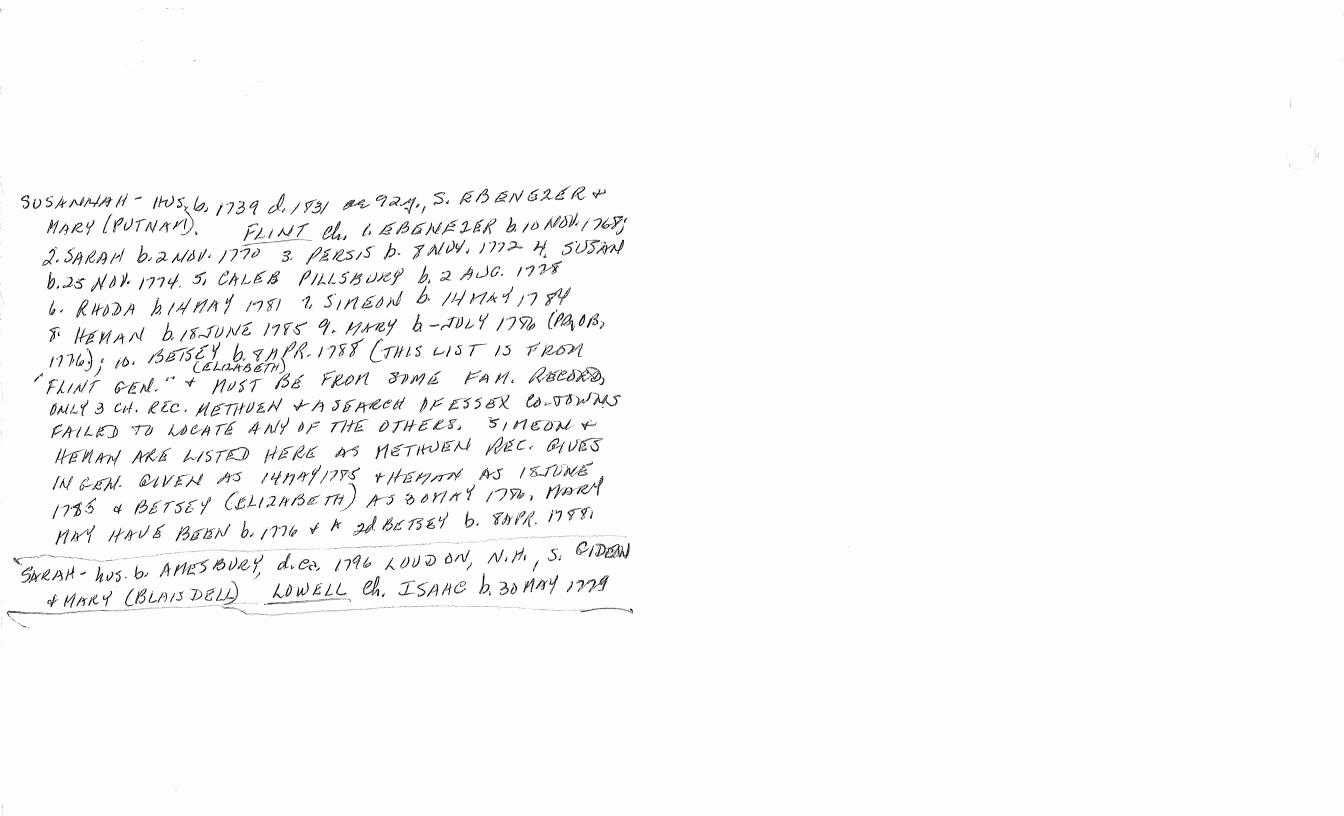 SUSANNAH - HUS. b. 1739 d. 1831 ae 92y., S. EBENEZER +
MARY (PUTNAM). FLINT Ch. 1. EBENEZER b. 10 NOV. 1768;
2. SARAH b. 2 NOV. 1770 3. PERSIS b. 8 NOV. 1772 4. SUSAN
b. 25 NOV. 1774. 5. CALEB PILLSBURY b. 2 AUG. 1778
6. RHODA b. 14 MAY 1781 7. SIMEON b. 14 MAY 1784
8. HEMAN b. 18 JUNE 1785 9. MARY b - JULY 1786 (PROB.
1776); 10. BETSEY b. 8 APR. 1788 (THIS LIST IS FROM
(ELIZABETH)
"FLINT GEN." + MUST BE FROM SOME FAM. RECORD,
ONLY 3 CH. REC. METHUEN + A SEARCH OF ESSEX CO. TOWNS
FAILED TO LOCATE ANY OF THE OTHERS. SIMEON +
HEMAN ARE LISTED HERE AS METHUEN REC. GIVES
IN GEN. GIVEN AS 14 MAY 1785 + HEMAN AS 18 JUNE
1785 + BETSEY (ELIZABETH) AS 30 MAY 1786. MARY
MAY HAVE BEEN b. 1776 + A 2d BETSEY b. 8 APR. 1788.
SARAH - hus. b. AMESBURY, d. ca. 1796 LOUDON, N.H., S. GIDEON
+ MARY (BLAISDELL) LOWELL Ch. ISAAC b. 30 MAY 1779